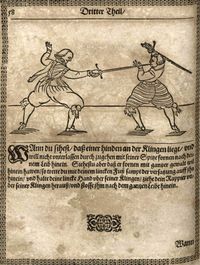 58 Dritter Theil/
WAnn du sihest/ daß einer hinden an der Klingen lige/ vnd
will nicht vnterlassen durch zugehen mit seiner Spitz fornen nach dei-
nem Leib hinein. Siehestu aber daß er fornen mit gantzer gewalt wil
hinein so were du mit deinem lincken Fuß sampt der versatzung auff
hinein/ vnd halte deine lincke Hand vber seiner Klingen/ ziehe dein Rappier
der seiner Klingen herauß/ vnd stosse ihm nach dem gantzen Leibe hinein.
Wann